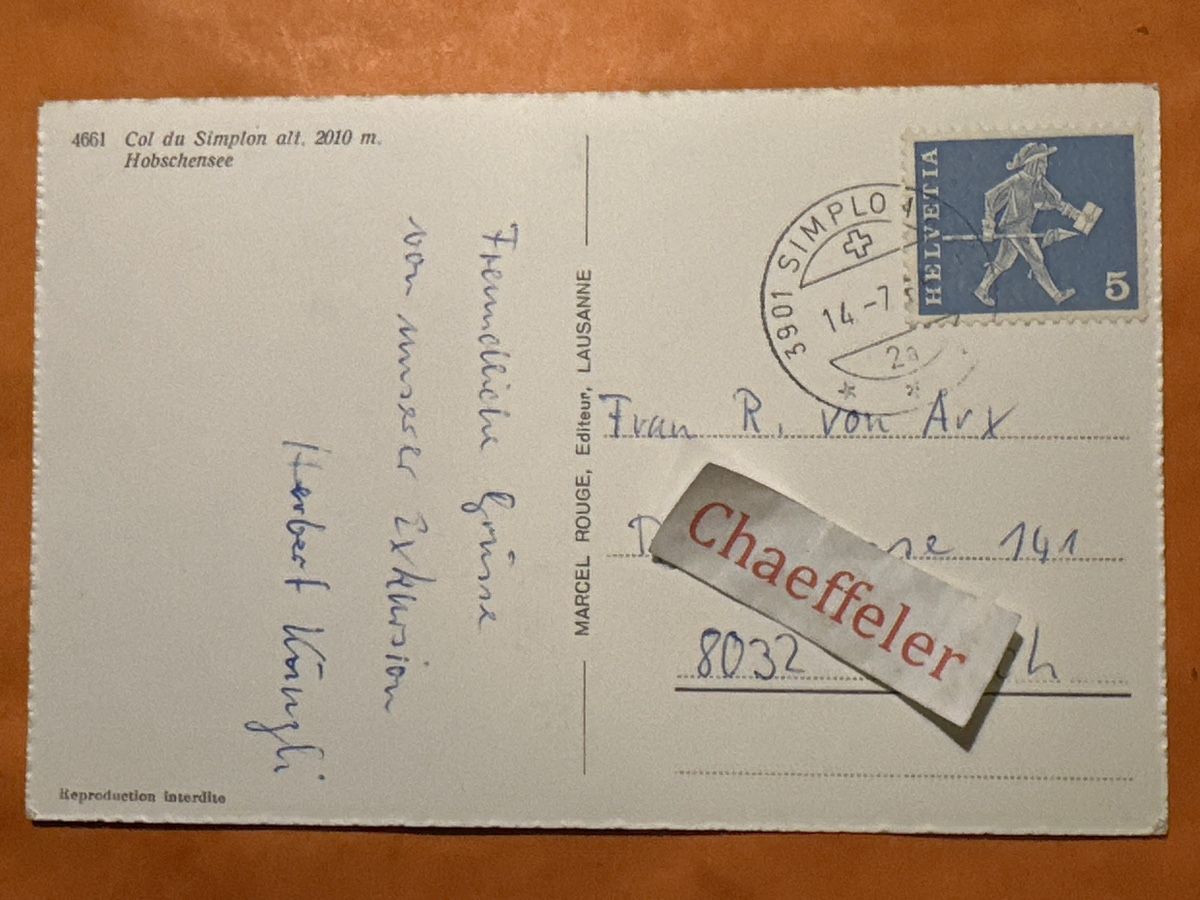 4661 Col du Simplon alt. 2010 m.
Hobschensee
Freundliche Grüsse
von unserer Exkursion
Herbert Künzli
Reproduction interdite
MARCEL ROUGE, Editeur, LAUSANNE
HELVETIA
5
3901 SIMPLO
14.-7
2a
Frau R. von Arx
141
8032
Chaeffeler